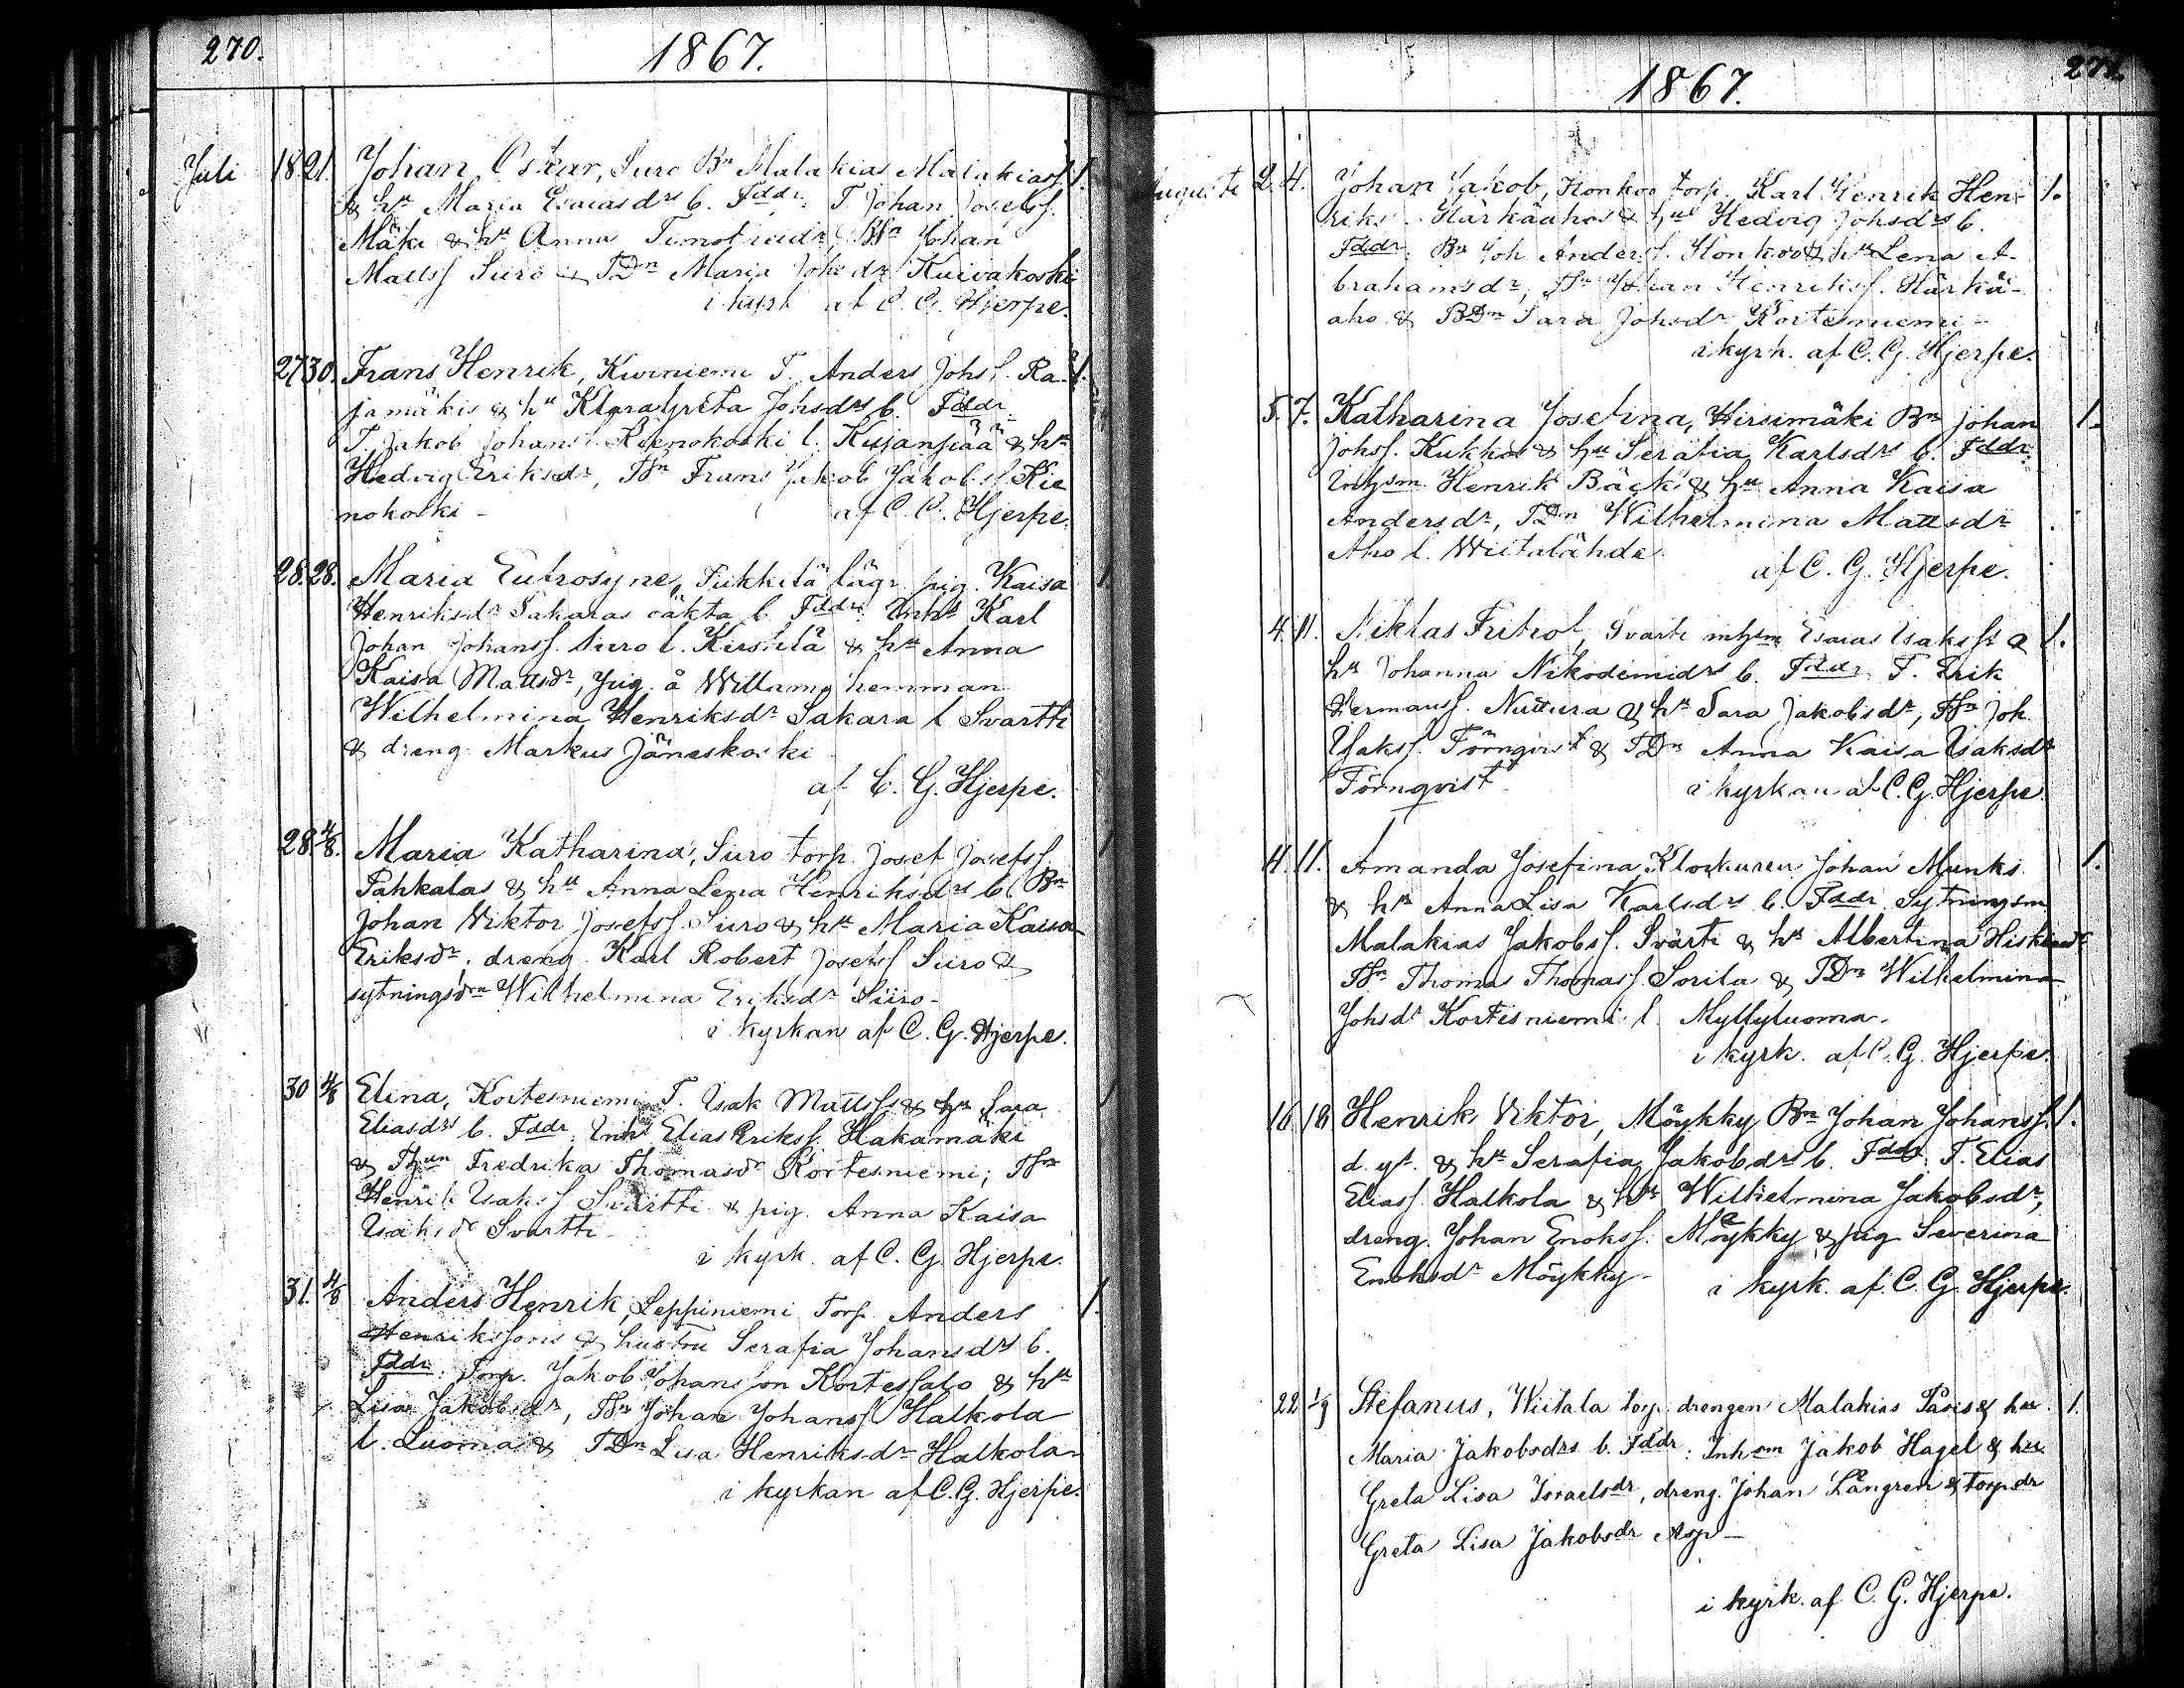 270.
1867.
Juli 18. 21. Johan Oskar, Suro Bn Malakias Malakiass. 1.
& hu Maria Esaiasdrs b. Fddr. T. Johan Josefss.
Mäki & hu Anna Timotheidr, Bsn Johan
Matss Suro & TDn Maria Johsdr Kuivakoski
i kyrk af C. G. Hjerpe.
27 30. Frans Henrik, Kiviniemi T. Anders Johss. Ra- 1.
jamäkis & hu Klara Greta Johsdrs b. Fddr.
T. Jakob Johanss. Kienokoski l. Kujanpää & hu
Hedvig Eriksdr, Tsn Frans Jakob Jakobss. Kie
nokoski - af C. G. Hjerpe.
28. 28. Maria Eufrosyne, lägr. pig. Kaisa 1.
Henriksdr Sakaras oäkta b. Fddr. Inhs Karl
Johan Johanss. Suro l. Kirsilä & hu Anna
Kaisa Mattsdr, pig. å Willamo hemman
Wilhelmina Henriksdr Sakara l Svartti
& dreng Markus Jäneskoski
af C. G. Hjerpe.
28. 4/8. Maria Katharina, Suro torp. Josef Josefss. 1
Pahkalas & hu Anna Lena Henriksdrs b. Bn
Johan Viktor Josefss. Suro & hu Maria Kaisa
Eriksdr, dreng Karl Robert Josefss Suro &
sytningsdrn Wilhelmina Eriksdr Suro -
i kyrkan af C. G. Hjerpe.
30 4/8 Elina, Kortesniemi T. Isak Mattss & hu Sara 1
Eliasdrs b. Fddr. Inhs Elias Erikss. Hakamäki
& Fredrika Thomasdr Kortesniemi; Tsn
Henrik Isakss Svartti & pig. Anna Kaisa
Isaksdr Svartti -
i kyrk. af C. G. Hjerpe.
31. 4/8 Anders Henrik, Leppiniemi Torp. Anders 1.
Henrikssons & hustru Serafia Johansdrs b.
Fddr: Torp. Jakob Johansson Kortessalo & hu
Lisa Jakobsdr, Tsn Johan Johanss. Halkola
l. Luoma & TDn Lisa Henriksdr Halkola
i kyrkan af C. G. Hjerpe.
271.
1867.
Augusti 2. 4. Johan Jakob, Honkoo torp. Karl Henrik Hen- 1.
riks. Härkäahos & hus Hedvig Johsdrs b.
Fddr. Bn Joh. Anderss. Honkoo & hu Lena A-
brahamsdr, Tsn Johan Henrikss. Härkä-
aho & BDn Sara Johsdr Kortesniemi -
i kyrk. af C. G. Hjerpe.
5. 7. Katharina Josefina, Hirsimäki Bn Johan 1.
Johss. Kukkos & hu Serafia Karlsdrs b. Fddr.
Inhsm. Henrik Bäck & hu Anna Kaisa
Andersdr, TDn Wilhelmina Mattsdr
Aho l. Wiitalähde
af C. G. Hjerpe.
4. 11. Niklas Fritiof, Svarti inhsm Esaias Isakss & 1.
hu Johanna Nikodemidrs b. Fddr. T. Erik
Hermanss. Nuttura & hu Sara Jakobsdr, Tsn Joh.
Isakss. Törnqvist & TDn Anna Kaisa Isaksdr
Törnqvist i kyrkan af C. G. Hjerpe.
4. 11. Amanda Josefina, Klockaren Johan Munks 1.
& hu Anna Lisa Karlsdrs b. Fddr. Sytningsm
Malakias Jakobss. Svarti & hu Albertina
Tsn Thomas Thomass. Sorila & TDn Wilhelmina
Johsdr Kortesniemi l. Myllyluoma.
i kyrk. af C. G. Hjerpe.
16 18 Henrik Viktor, Möykky Bn Johan Johanss. 1.
d. y. & hu Serafia Jakobsdrs b. Fddr. T. Elias
Eliass. Halkola & hu Wilhelmina Jakobsdr,
dreng. Johan Enokss. Möykky & pig Severina
Enoksdr Möykky - i kyrk. af C. G. Hjerpe.
22 1/9 Stefanus, Wiitala torp. drengen Malakias & hu 1.
Maria Jakobsdrs b. Fddr: Inhsm Jakob Hagel & hu
Greta Lisa Israelsdr, dreng. Johan Långren & torpdr
Greta Lisa Jakobsdr Asp -
i kyrk. af C. G. Hjerpe.